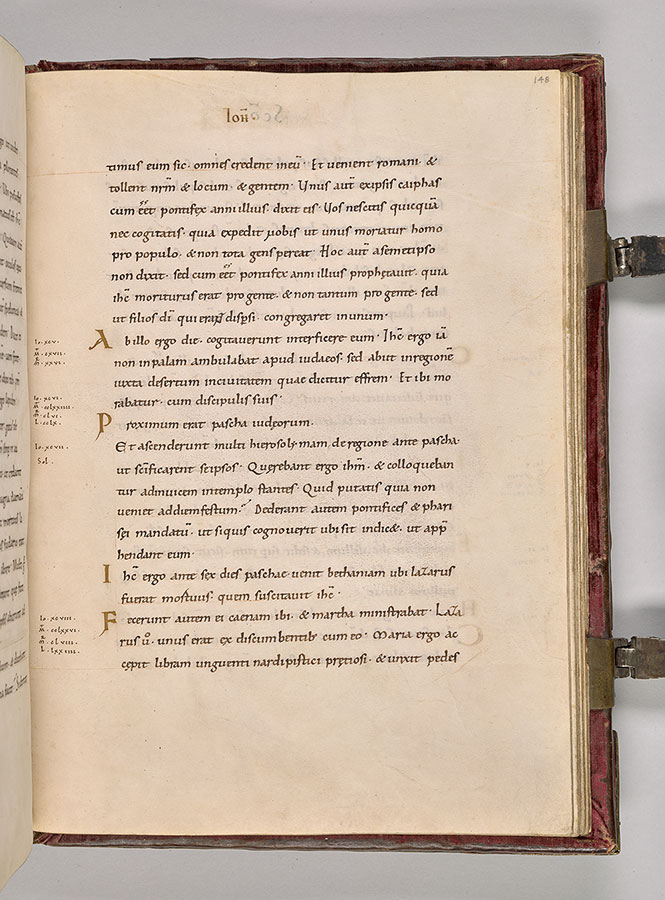 148
Ioħ
timus eum sic · omnes credent ineū · Et venient romani · &
tollent nr̄m & locum · & gentem · Unus aut̄ exipsis caiphas
cum eēt pontifex anni illius · dixit eis · Uos nescitis quicquā
nec cogitatis · quia expedit vobis ut unus moriatur homo
pro populo · & non tota gens pereat · Hoc aut̄ asemetipso
non dixit · sed cum eēt pontifex anni illius prophetauit · quia
ihc̄ moriturus erat progente · & non tantum pro gente · sed
ut filios dī qui erant disp̄si · congregaret inunum ·
Io. xcv.
M̄. cxvii.
R̄. xxvi.
A billo ergo die · cogitauerunt interficere eum · Ihc̄ ergo iā
non inpalam ambulabat apud iudaeos · sed abiit inregionē
iuxta desertum inciuitatem quae dicitur effrem · Et ibi mo
rabatur · cum discipulis suis ·
Io. xcvi.
M̄. cclxxiiii.
R̄. clvi.
L. cclx.
P roximum erat pascha iudęorum ·
Io. xcvii.
Sol.
Et ascenderunt multi hierosolymam de regione ante pascha ·
ut scīficarent seipsos · Querebant ergo ihm̄ · & colloqueban
tur adinuicem intemplo stantes · Quid putatis quia non
veniet addiemfestum · Dederant autem pontifices & phari
sei mandatū · ut siquis cognouerit ubi sit indic& · ut app̄
hendant eum ·
I hc̄ ergo ante sex dies paschae venit bethaniam ubi lazarus
fuerat mortuus · quem suscitauit ihc̄ ·
Io. xcviii.
M̄. cclxxvi.
R̄. clviii.
L. lxxiiii.
F ecerunt autem ei caenam ibi · & martha ministrabat · Laza
rus ū · unus erat ex discumbentib; cum eo · Maria ergo ac
cepit libram unguenti nardipistici prętiosi · & unxit pedes